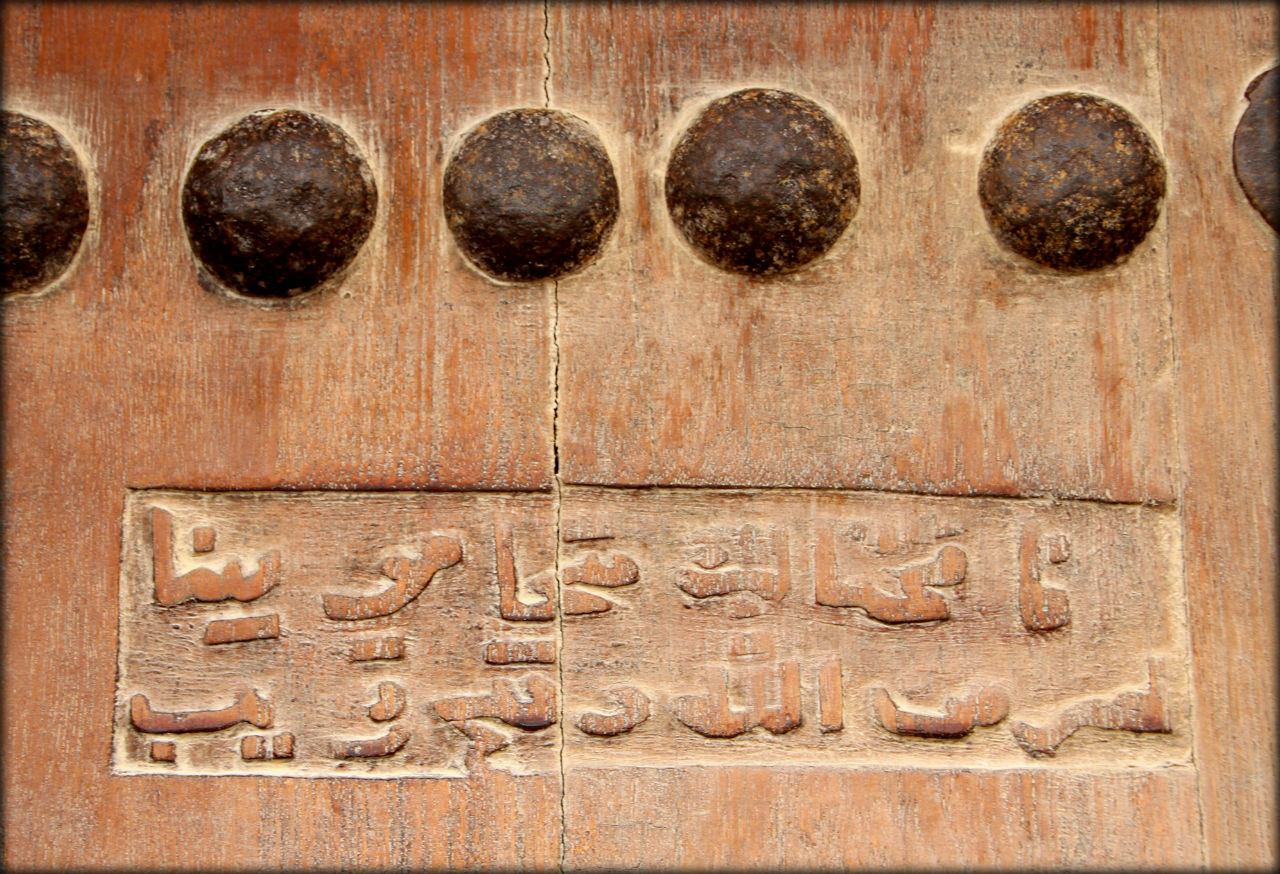 انا فتحنا لك فتحا مبينا
نصر من الله وفتح قريب